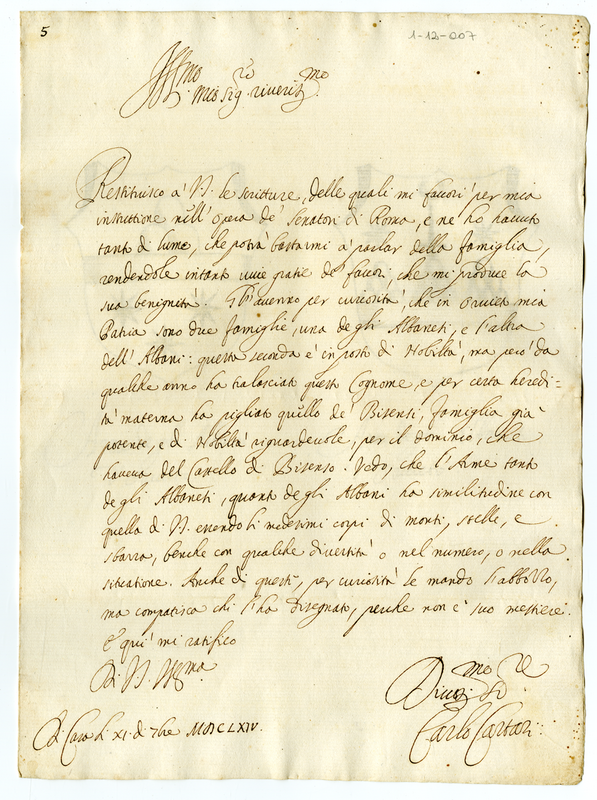 5
1-12-007
Ill.mo
Mio Sig.re riverit.mo
Restituisco à V.S. le scritture, delle quali mi favorì per mia
instruttione nell'opera de' Senatori di Roma, e ne hò havuto
tanto di lume, che potrà bastarmi à parlar della famiglia,
rendendole intanto vive gratie de' favori, che mi produce la
sua benignità. Gl'avverto per curiosità, che in Orvieto mia
Patria sono due famiglie, una degli Albaneti, e l'altra
dell'Albani: questa seconda è in posto di Nobiltà, ma però da
qualche anno ha tralasciato questo Cognome, e per certa heredi=
tà materna ha pigliato quello de' Bisenti, famiglia già
potente, e di Nobiltà riguardevole, per il dominio, che
haveva del Castello di Bisenso. Vedo, che l'Arme tanto
degli Albaneti, quanto degli Albani ha similitudine con
quella di V.S. essendo li medesimi corpi di monti, stelle, e
sbarra, benche con qualche diversità ò nel numero, ò nella
situatione. Anche di questi, per curiosità le mando l'abbozzo,
ma compatisca chi l'ha disegnato, perche non è suo mestiere.
E quì mi ratifico
Di V.S. Ill.ma
Di Casa li XI. di 7bre MDCLXIV.
Divot.mo Se.re
Carlo Cartari